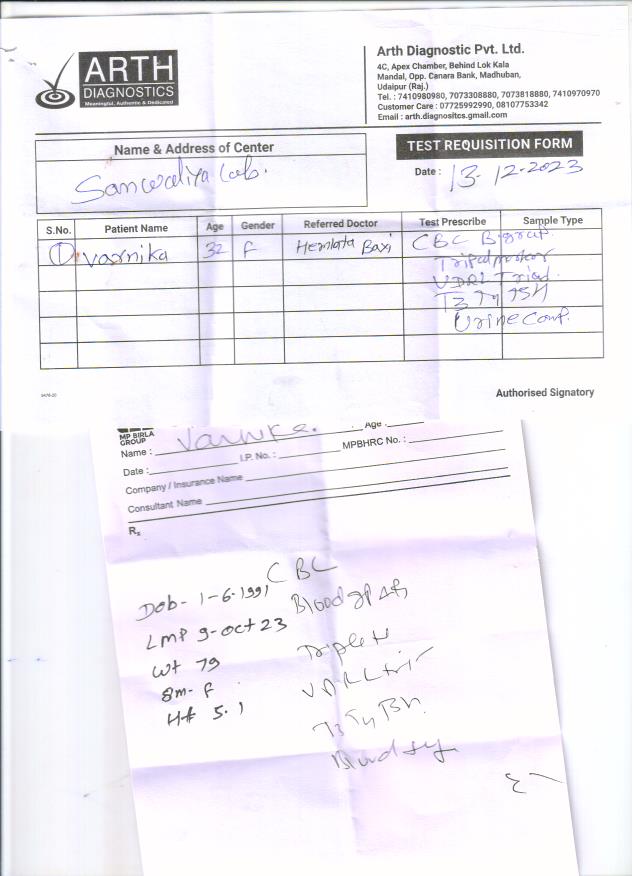 ARTH
DIAGNOSTICS
Meaningful, Authentic & Dedicated
Arth Diagnostic Pvt. Ltd.
4C, Apex Chamber, Behind Lok Kala
Mandal, Opp. Canara Bank, Madhuban,
Udaipur (Raj.)
Tel. : 7410980980, 7073308880, 7073818880, 7410970970
Customer Care : 07725992990, 08107753342
Email : arth.diagnositcs.gmail.com
Name & Address of Center
Sanwaliya Lab.
TEST REQUISITION FORM
Date : 13-12-2023
S.No. Patient Name Age Gender Referred Doctor Test Prescribe Sample Type
1 Varnika 32 F Hemlata Baxi CBC B.group.
VDRL Triad.
T3 T4 TSH
Urine
Authorised Signatory
MP BIRLA
GROUP
Name : Age :
Date : I.P. No. : MPBHRC No. :
Company / Insurance Name
Consultant Name
Rx
CBC
Dob- 1-6-1991
Blood gp
LMP 9-Oct 23
Triple
Wt 79
VDRL
8m- F
T3 T4
Ht 5.1
Blood